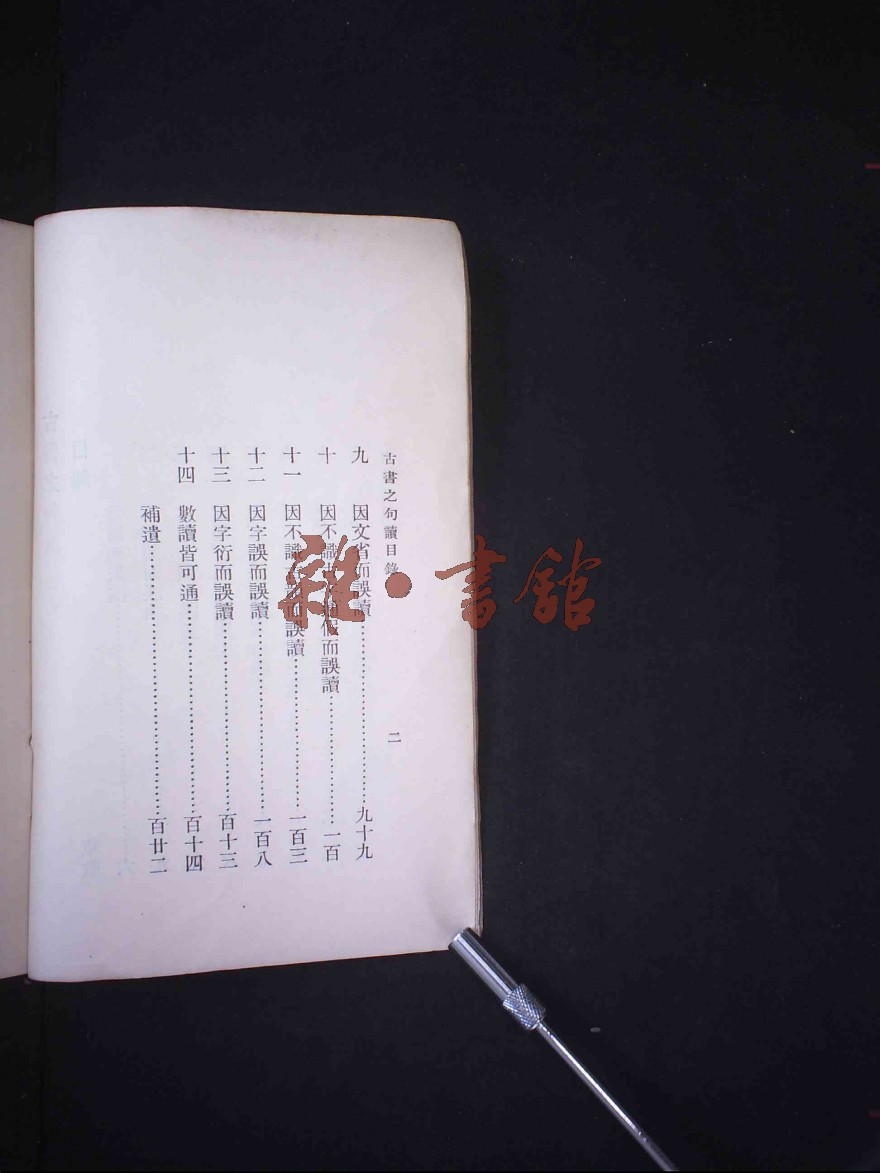 古書之句讀目錄
二
九 因文省而誤讀……九十九
十 因不識 假而誤讀……一百
十一 因不識 而誤讀……一百三
十二 因字誤而誤讀……一百八
十三 因字衍而誤讀……百十三
十四 數讀皆可通……百十四
補遺……百廿二
雜·書館